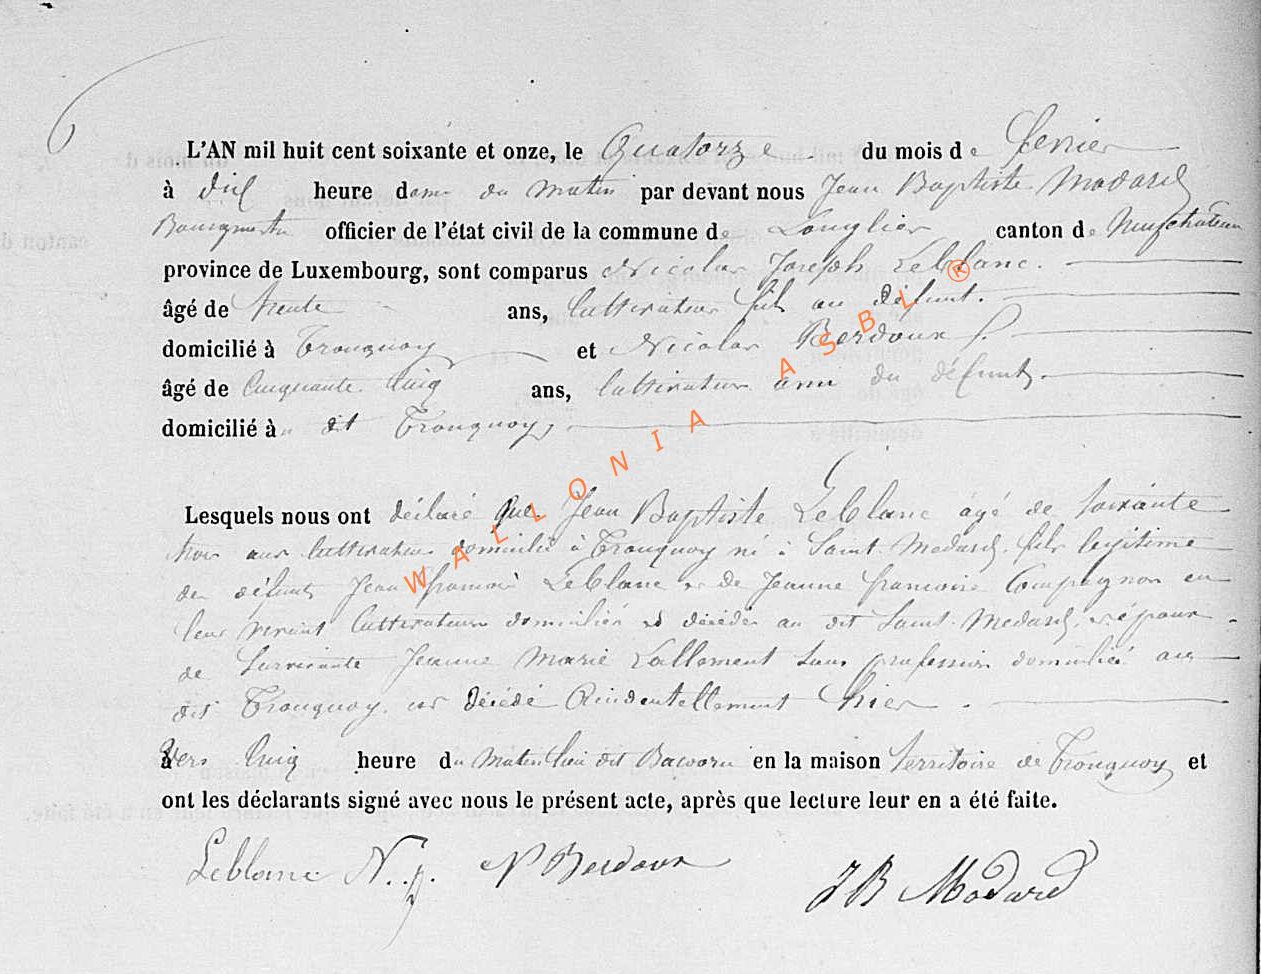 6
L'AN mil huit cent soixante et onze, le Quatorze du mois de fevrier
à dix heure dame du Matin par devant nous Jean Baptiste Modard
Bourgmestre officier de l'état civil de la commune de Longlier canton de Neufchâteau
province de Luxembourg, sont comparus Nicolas Joseph LeBlanc.
âgé de trente ans, Cultivateur fils au défunt.
domicilié à Tronquoy et Nicolas Berdoux J.
âgé de Cinquante Cinq ans, Cultivateur ami du défunt.
domicilié à dit Tronquoy.
Lesquels nous ont déclaré que Jean Baptiste LeBlanc âgé de soixante
trois ans Cultivateur domicilié à Tronquoy né à Saint Medard, fils legitime
des défunts Jean francois LeBlanc et de Jeanne francoise Compagnon en
leur vivant Cultivateurs domiciliés et décédés au dit Saint-Medard, et époux
de Survivante Jeanne Marie Lallement sans profession domiciliée au
dit Tronquoy, est décédé Accidentellement hier.
à Vers Cinq heure du Matin lieu dit en la maison territoire de Tronquoy et
ont les déclarants signé avec nous le présent acte, après que lecture leur en a été faite.
Leblanc N. J. N Berdoux
J B Modard
WALLONIA ASBL ®